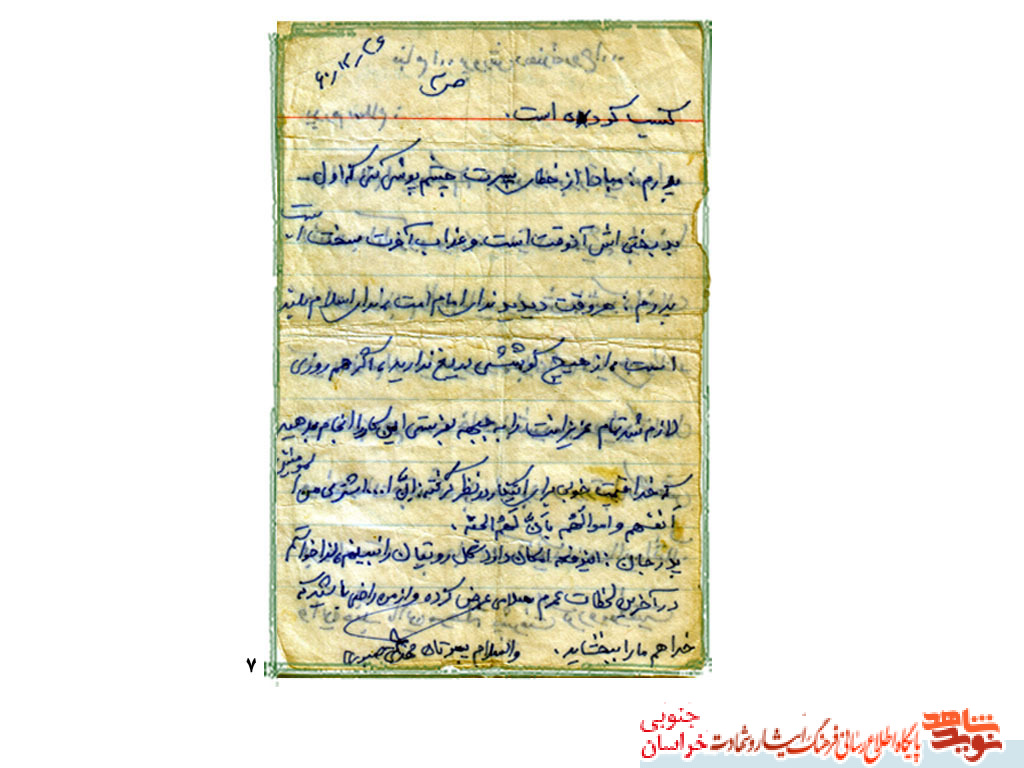 ۶۰/۱۲/۲۶
ص۳
کسب کوده است.
پدرم: بیا و از خطای پسرت چشم پوشی کنی که اول
بدبختی اش آنوقت است و عذاب آخرت سخت است
پدرم: هر وقت دیدید ندای امام است ندای اسلام بلند
است، از هیچ کوششی دریغ ندارید، اگر هم روزی
لازم شد تمام عزیزانت را به جبهه بفرستی این کار را انجام بدهید
که خدا قیمت خوبی برای اینکار در نظر گرفته: انّ الله اشتری من المومنین
انفسهم و اموالهم بانّ لهم الجنة.
پدر جان: ایندفعه امکان دارد شکل رویتان را نبینم، لذا خواستم
در آخرین لحظات عمرم سلامی عرض کرده و از من راضی باشید که
خدا هم ما را ببخشاید. والسلام پسرتان
۷
نوید شاهد
پایگاه اطلاع رسانی فرهنگ ایثار و شهادت
خراسان جنوبی